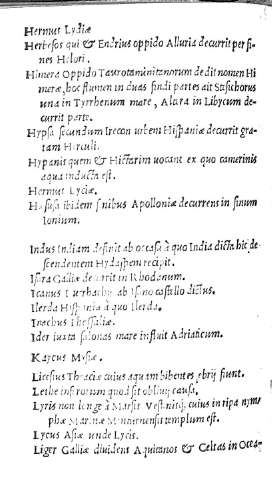 Hermus Lydiæ
Herbesos qui & Endrius oppido Alluria decurrit per fi-
nes Helori.
Himera Oppido Taurotaminitanorum dedit nomen Hi
meræ, hoc flumen in duas findi partes ait Stesichorus
una in Tyrrhenum mare, Altera in Libycum de-
currit parte.
Hypsa secundum Irecon urbem Hispaniæ decurrit gra-
tam Herculi.
Hypanis quem & Hictarim uocant ex quo camerinis
aqua inducta est.
Hermus Lyciæ.
ibidem finibus Apolloniæ decurrens in sinum
Ionium.
Indus Indiam definit ab occasu à quo India dicta hic de-
scendentem Hydaspem recipit.
Isara Galliæ decurrit in Rhodanum.
Icanus ab Isano castello dictus.
Ilerda Hispania à quo Ilerda.
Inachus Thessaliæ.
Ider iuxta salonas mare influit Adriaticum.
Kaycus Mysiæ.
Licesius Thraciæ cuius aquam bibentes ebrij fiunt.
Lethe inferorum quod sit obliuij causa.
Lyris non longe à Marsis cuius in ripa nym-
phæ Maricæ Minturnensis templum est.
Lycus Asiæ unde Lycis.
Liger Galliæ diuidens Aquitanos & Celtas in Ocea-